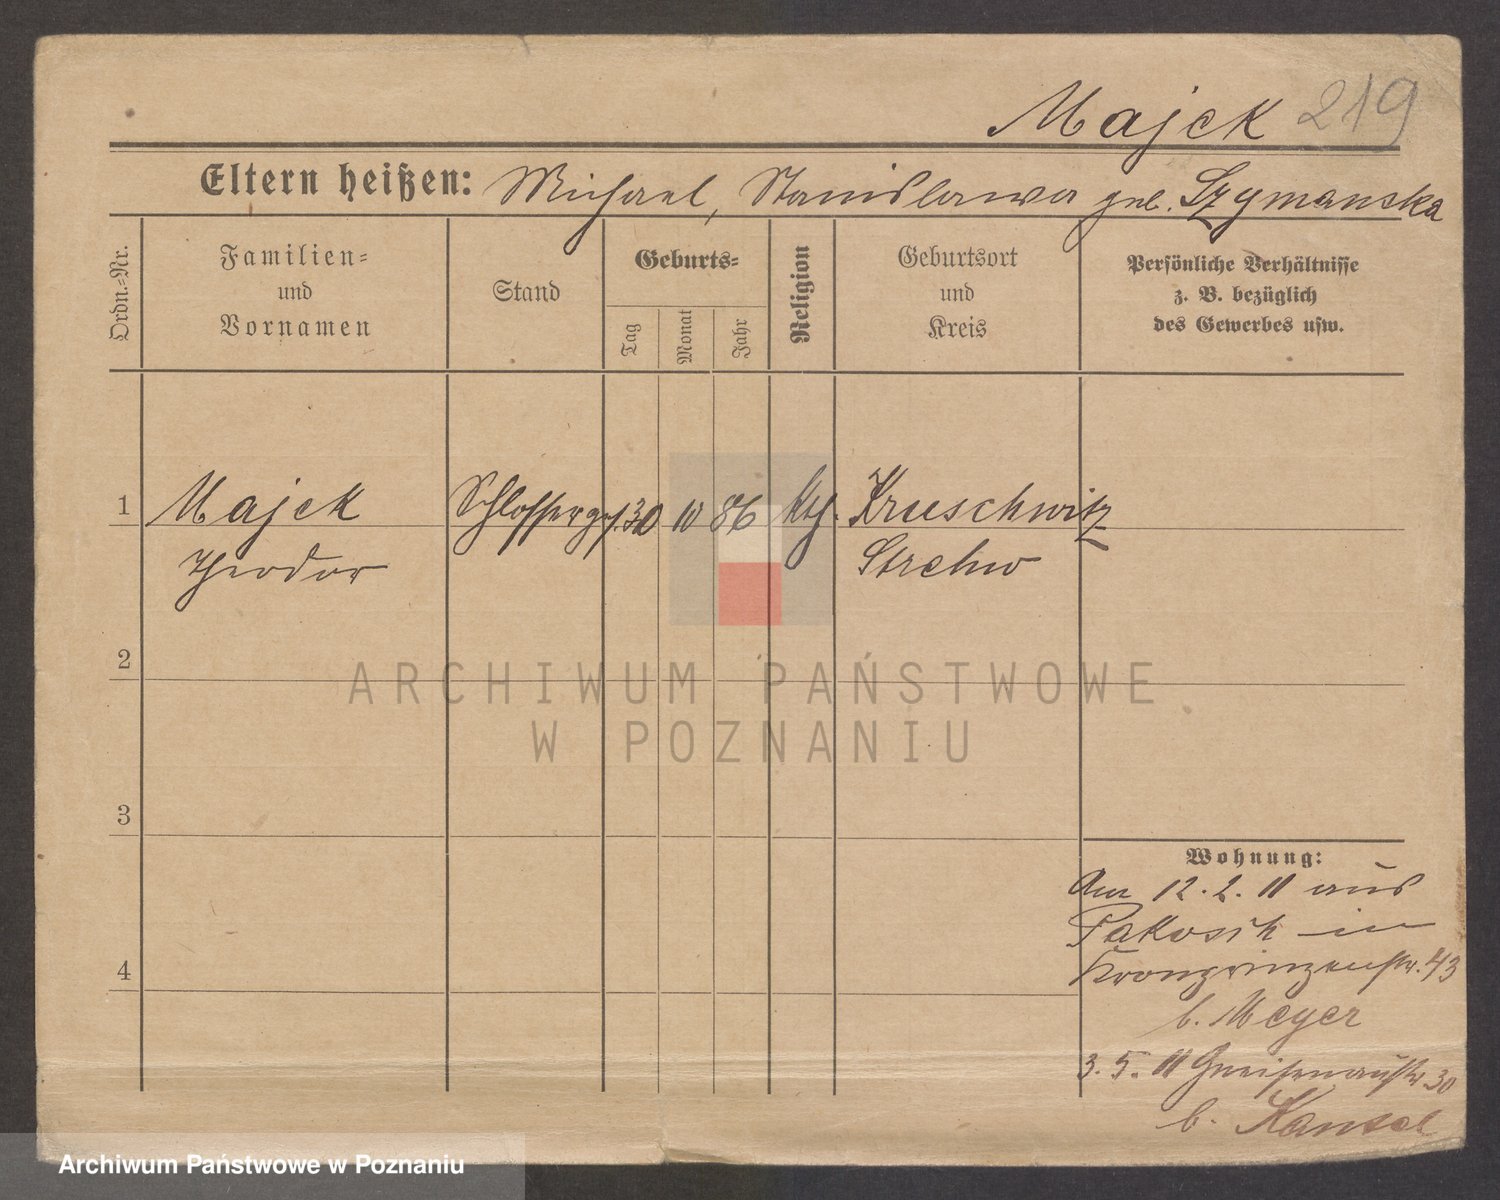 Majek 219
Eltern heißen: Michael, Stanislawa geb. Szymanska
Ordn.-Nr.
Familien-
und
Vornamen
Stand
Geburts-
Tag
Monat
Jahr
Religion
Geburtsort
und
Kreis
Persönliche Verhältnisse
z. B. bezüglich
des Gewerbes usw.
1 Majek Schlosserges. 30 10 86 kth. Kruschwitz
Theodor Strelno
2
3
4
Wohnung:
Am 12.2.11 aus
Pakosch in
Kronprinzenstr. 43
b. Meyer
3.5.11 Gneisenaustr 30
b.
ARCHIWUM PAŃSTWOWE
W POZNANIU
Archiwum Państwowe w Poznaniu